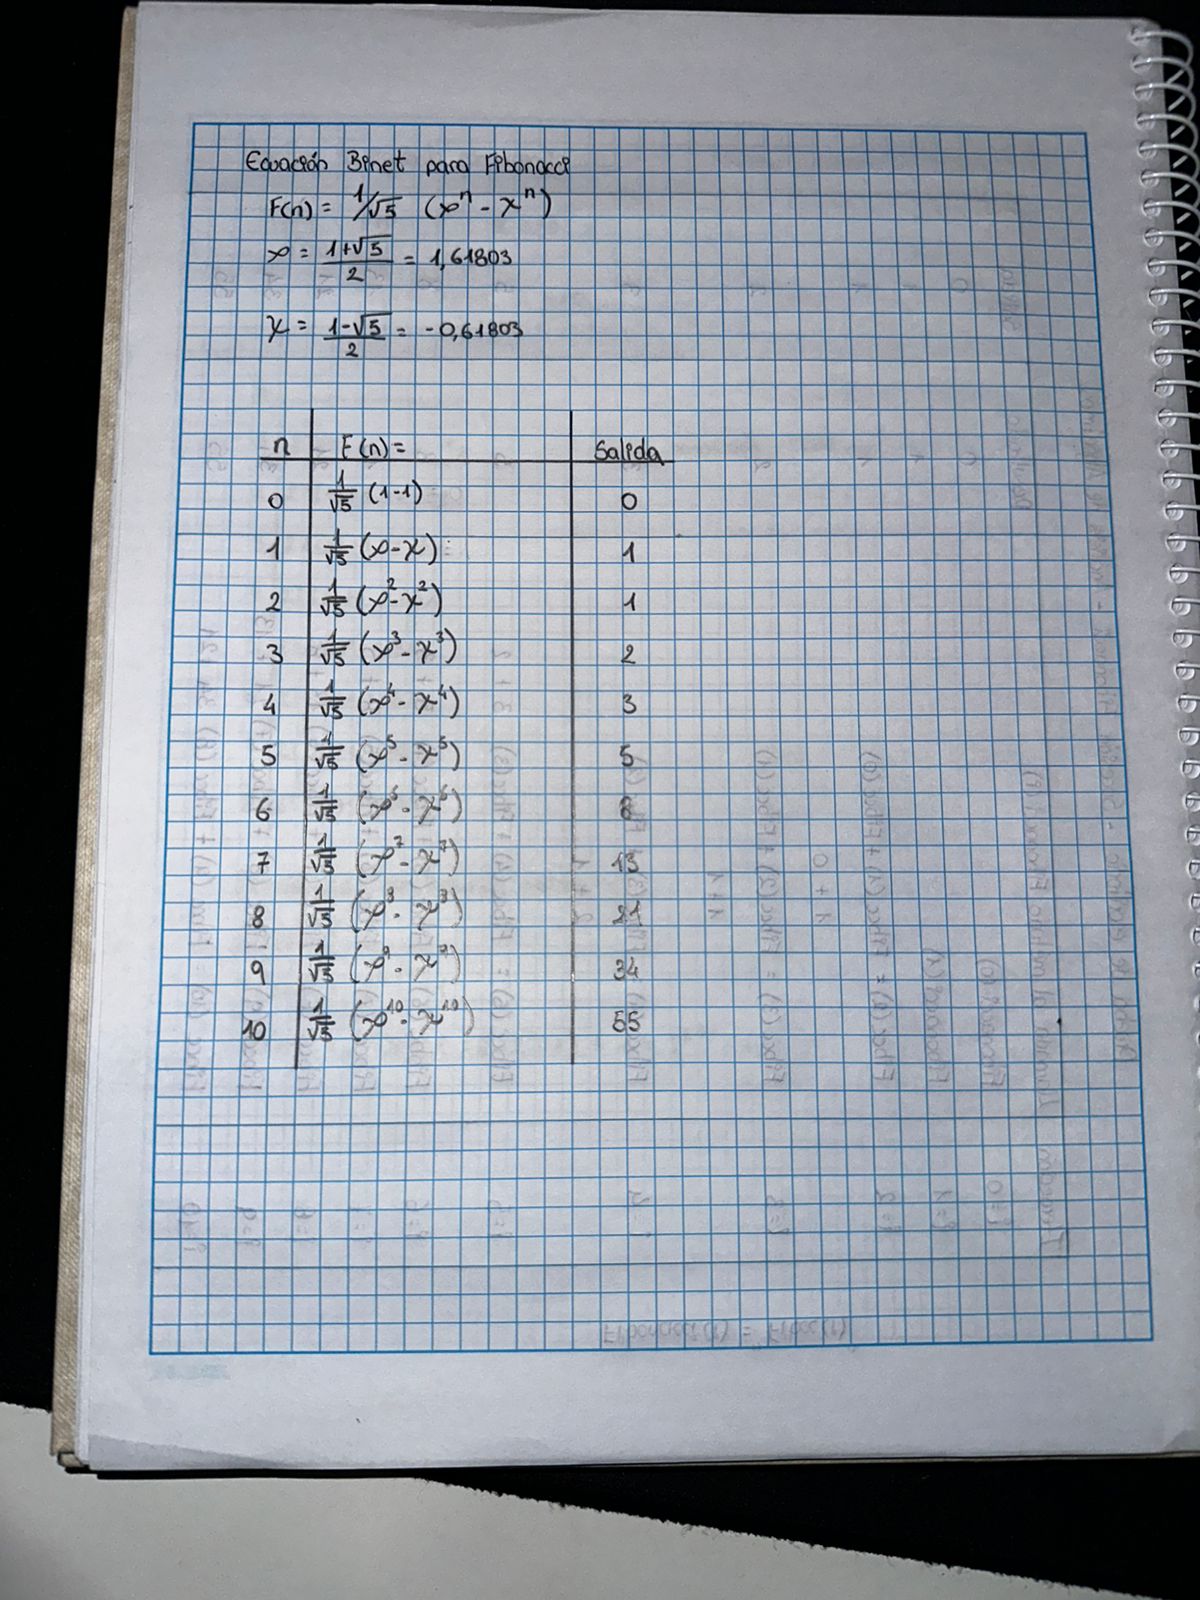 Ecuación Binet para Fibonacci
F(n) = 1/√5 (φⁿ - χⁿ)
φ = (1+√5)/2 = 1,61803
χ = (1-√5)/2 = -0,61803
n F(n)= Salida
0 1/√5 (1-1) 0
1 1/√5 (φ-χ) 1
2 1/√5 (φ²-χ²) 1
3 1/√5 (φ³-χ³) 2
4 1/√5 (φ⁴-χ⁴) 3
5 1/√5 (φ⁵-χ⁵) 5
6 1/√5 (φ⁶-χ⁶) 8
7 1/√5 (φ⁷-χ⁷) 13
8 1/√5 (φ⁸-χ⁸) 21
9 1/√5 (φ⁹-χ⁹) 34
10 1/√5 (φ¹⁰-χ¹⁰) 55